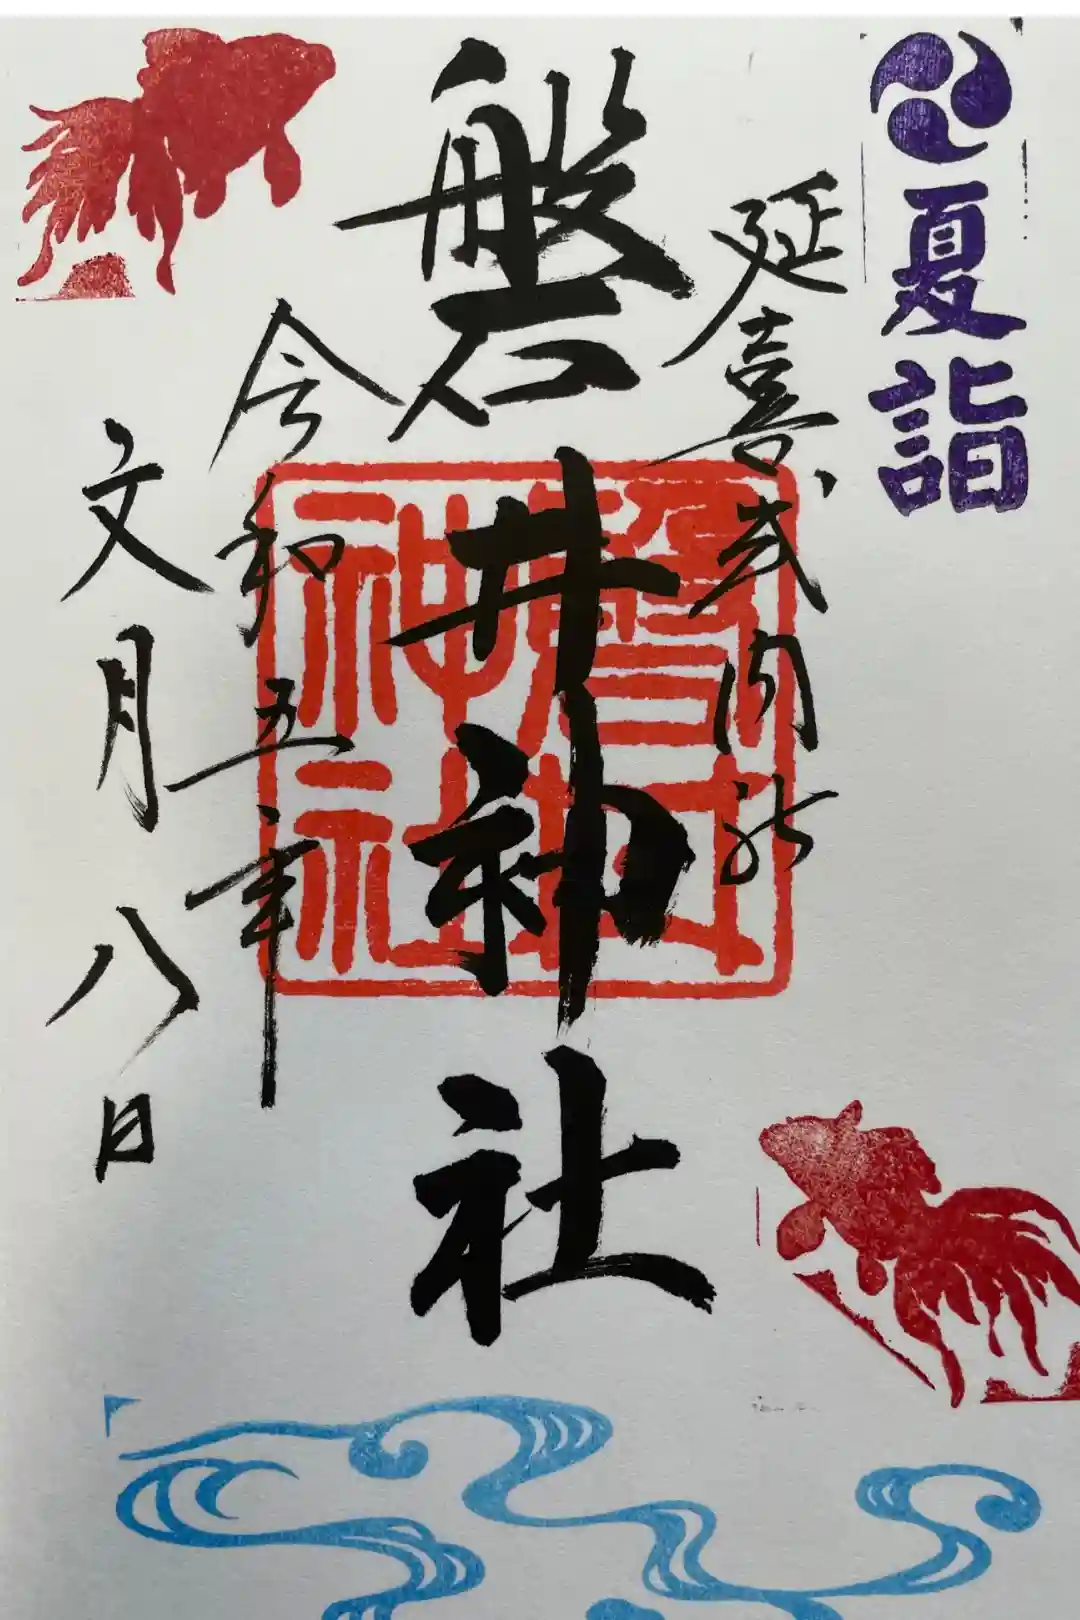 夏詣
延喜式内社
磐井神社
磐井
神社
令和五年
文月八日